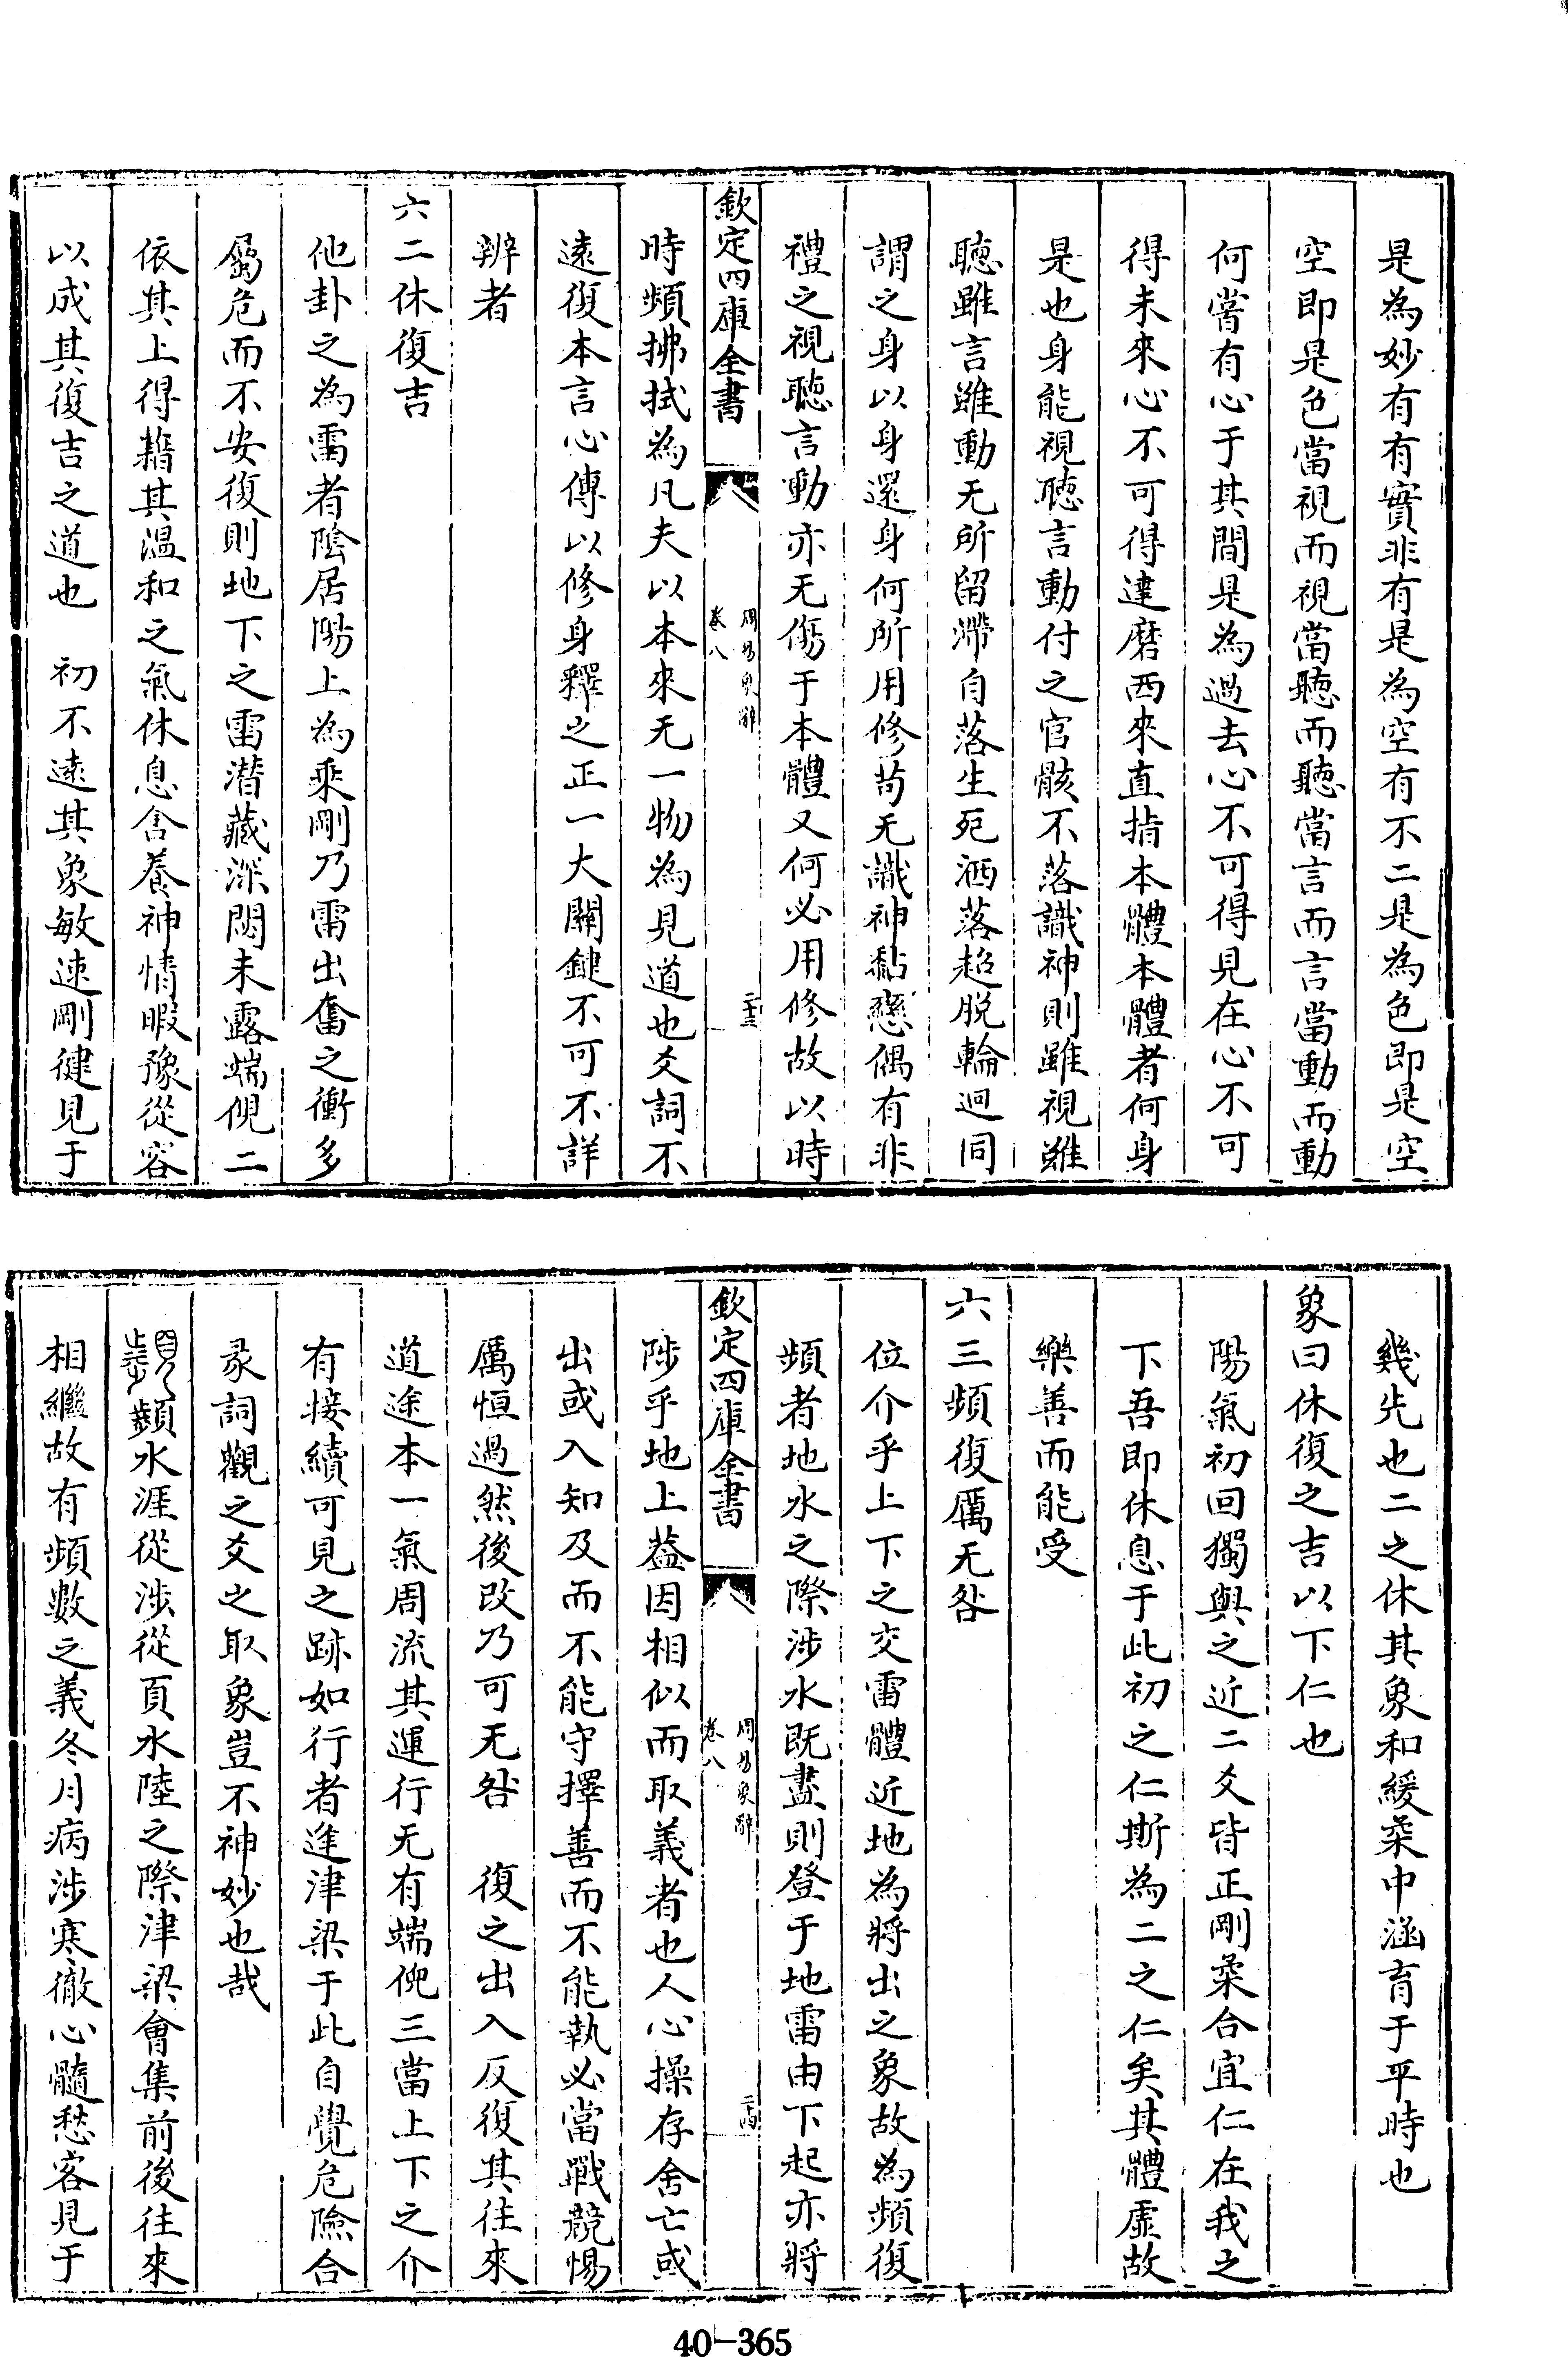 是為妙有有實非有是為空有不二是為色即是空
空即是色當視而視當聽而聽當言而言當動而動
何嘗有心于其間是為過去心不可得見在心不可
得未來心不可得達磨西來直指本體本體者何身
是也身能視聽言動付之官骸不落識神則雖視雖
聽雖言雖動无所留滯自落生死洒落超脫輪迴同
謂之身以身還身何所用修茍无識神黏戀偶有非
禮之視聽言動亦无傷于本體又何必用修故以時
欽定四庫全書
周易象辭
卷八
二十三
時頻拂拭為凡夫以本來无一物為見道也爻詞不
遠復本言心傳以修身釋之正一大關鍵不可不詳
辨者
六二休復吉
他卦之為雷者陰居陽上為乘剛乃雷出奮之衝多
屬危而不安復則地下之雷潛藏深閟未露端倪二
依其上得藉其溫和之氣休息含養神情暇豫從容
以成其復吉之道也　初不遠其象敏速剛健見于
幾先也二之休其象和緩柔中涵育于平時也
象曰休復之吉以下仁也
陽氣初回獨與之近二爻皆正剛柔合宜仁在我之
下吾即休息于此初之仁斯為二之仁矣其體虛故
樂善而能受
六三頻復厲无咎
位介乎上下之交雷體近地為將出之象故為頻復
頻者地水之際涉水既盡則登于地雷由下起亦將
欽定四庫全書
周易象辭
卷八
二十四
陟乎地上葢因相似而取義者也人心操存舍亡或
出或入知及而不能守擇善而不能執必當戰兢惕
厲恒過然後改乃可无咎　復之出入反復其往來
道途本一氣周流其運行无有端倪三當上下之介
有接續可見之跡如行者逢津梁于此自覺危險合
彖詞觀之爻之取象豈不神妙也哉
顰水涯從涉從頁水陸之際津梁會集前後往來
相繼故有頻數之義冬月病涉寒徹心髓愁容見于
40-365